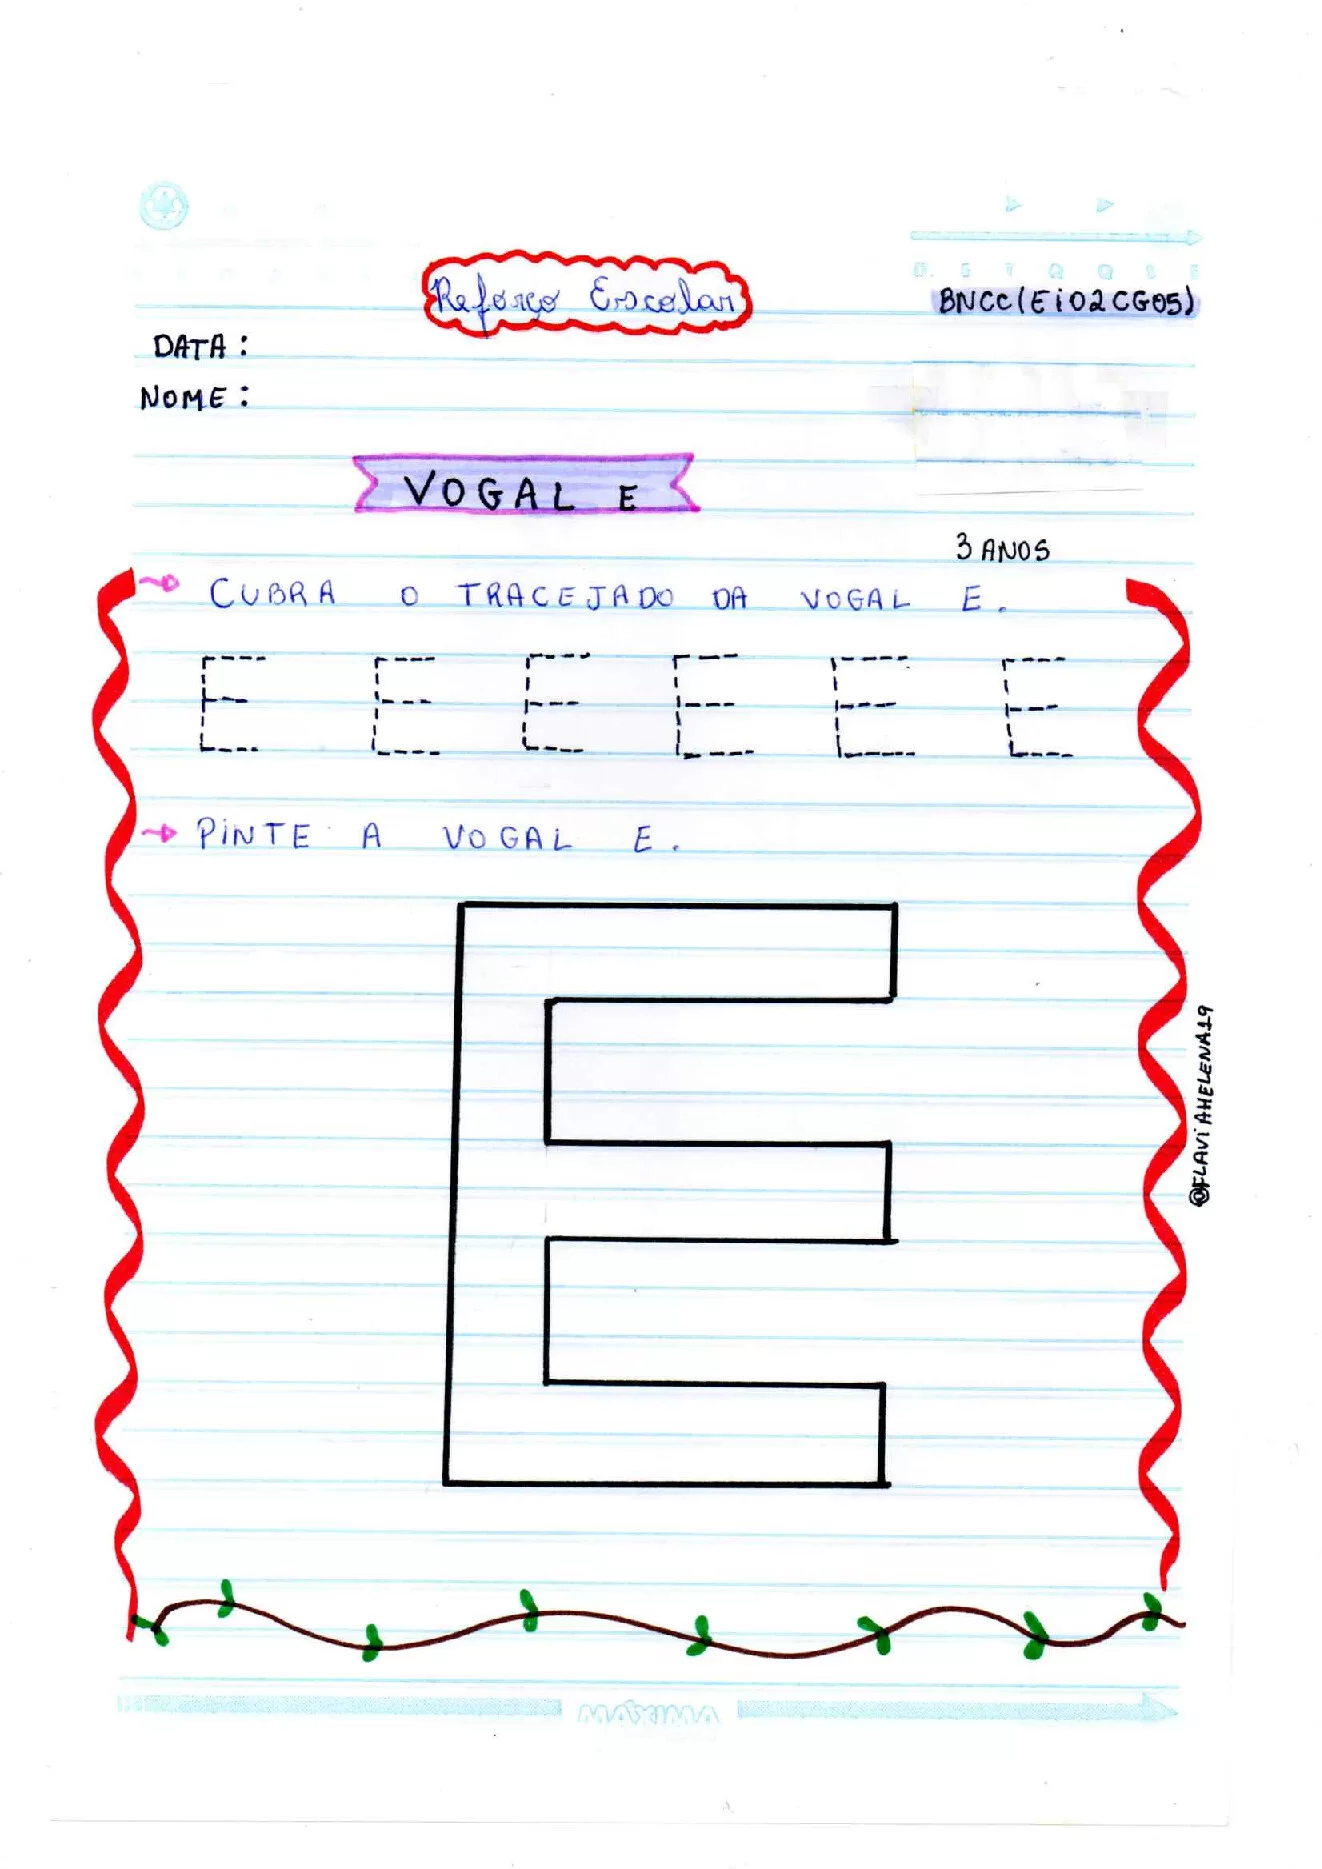 D. S T Q Q S S
Reforço Escolar
BNCC(Ei02CG05)
DATA:
NOME:
VOGAL E
3 ANOS
CUBRA O TRACEJADO DA VOGAL E.
E E E E E E
PINTE A VOGAL E.
E
@FLAViAHELENA19
MAXIMA